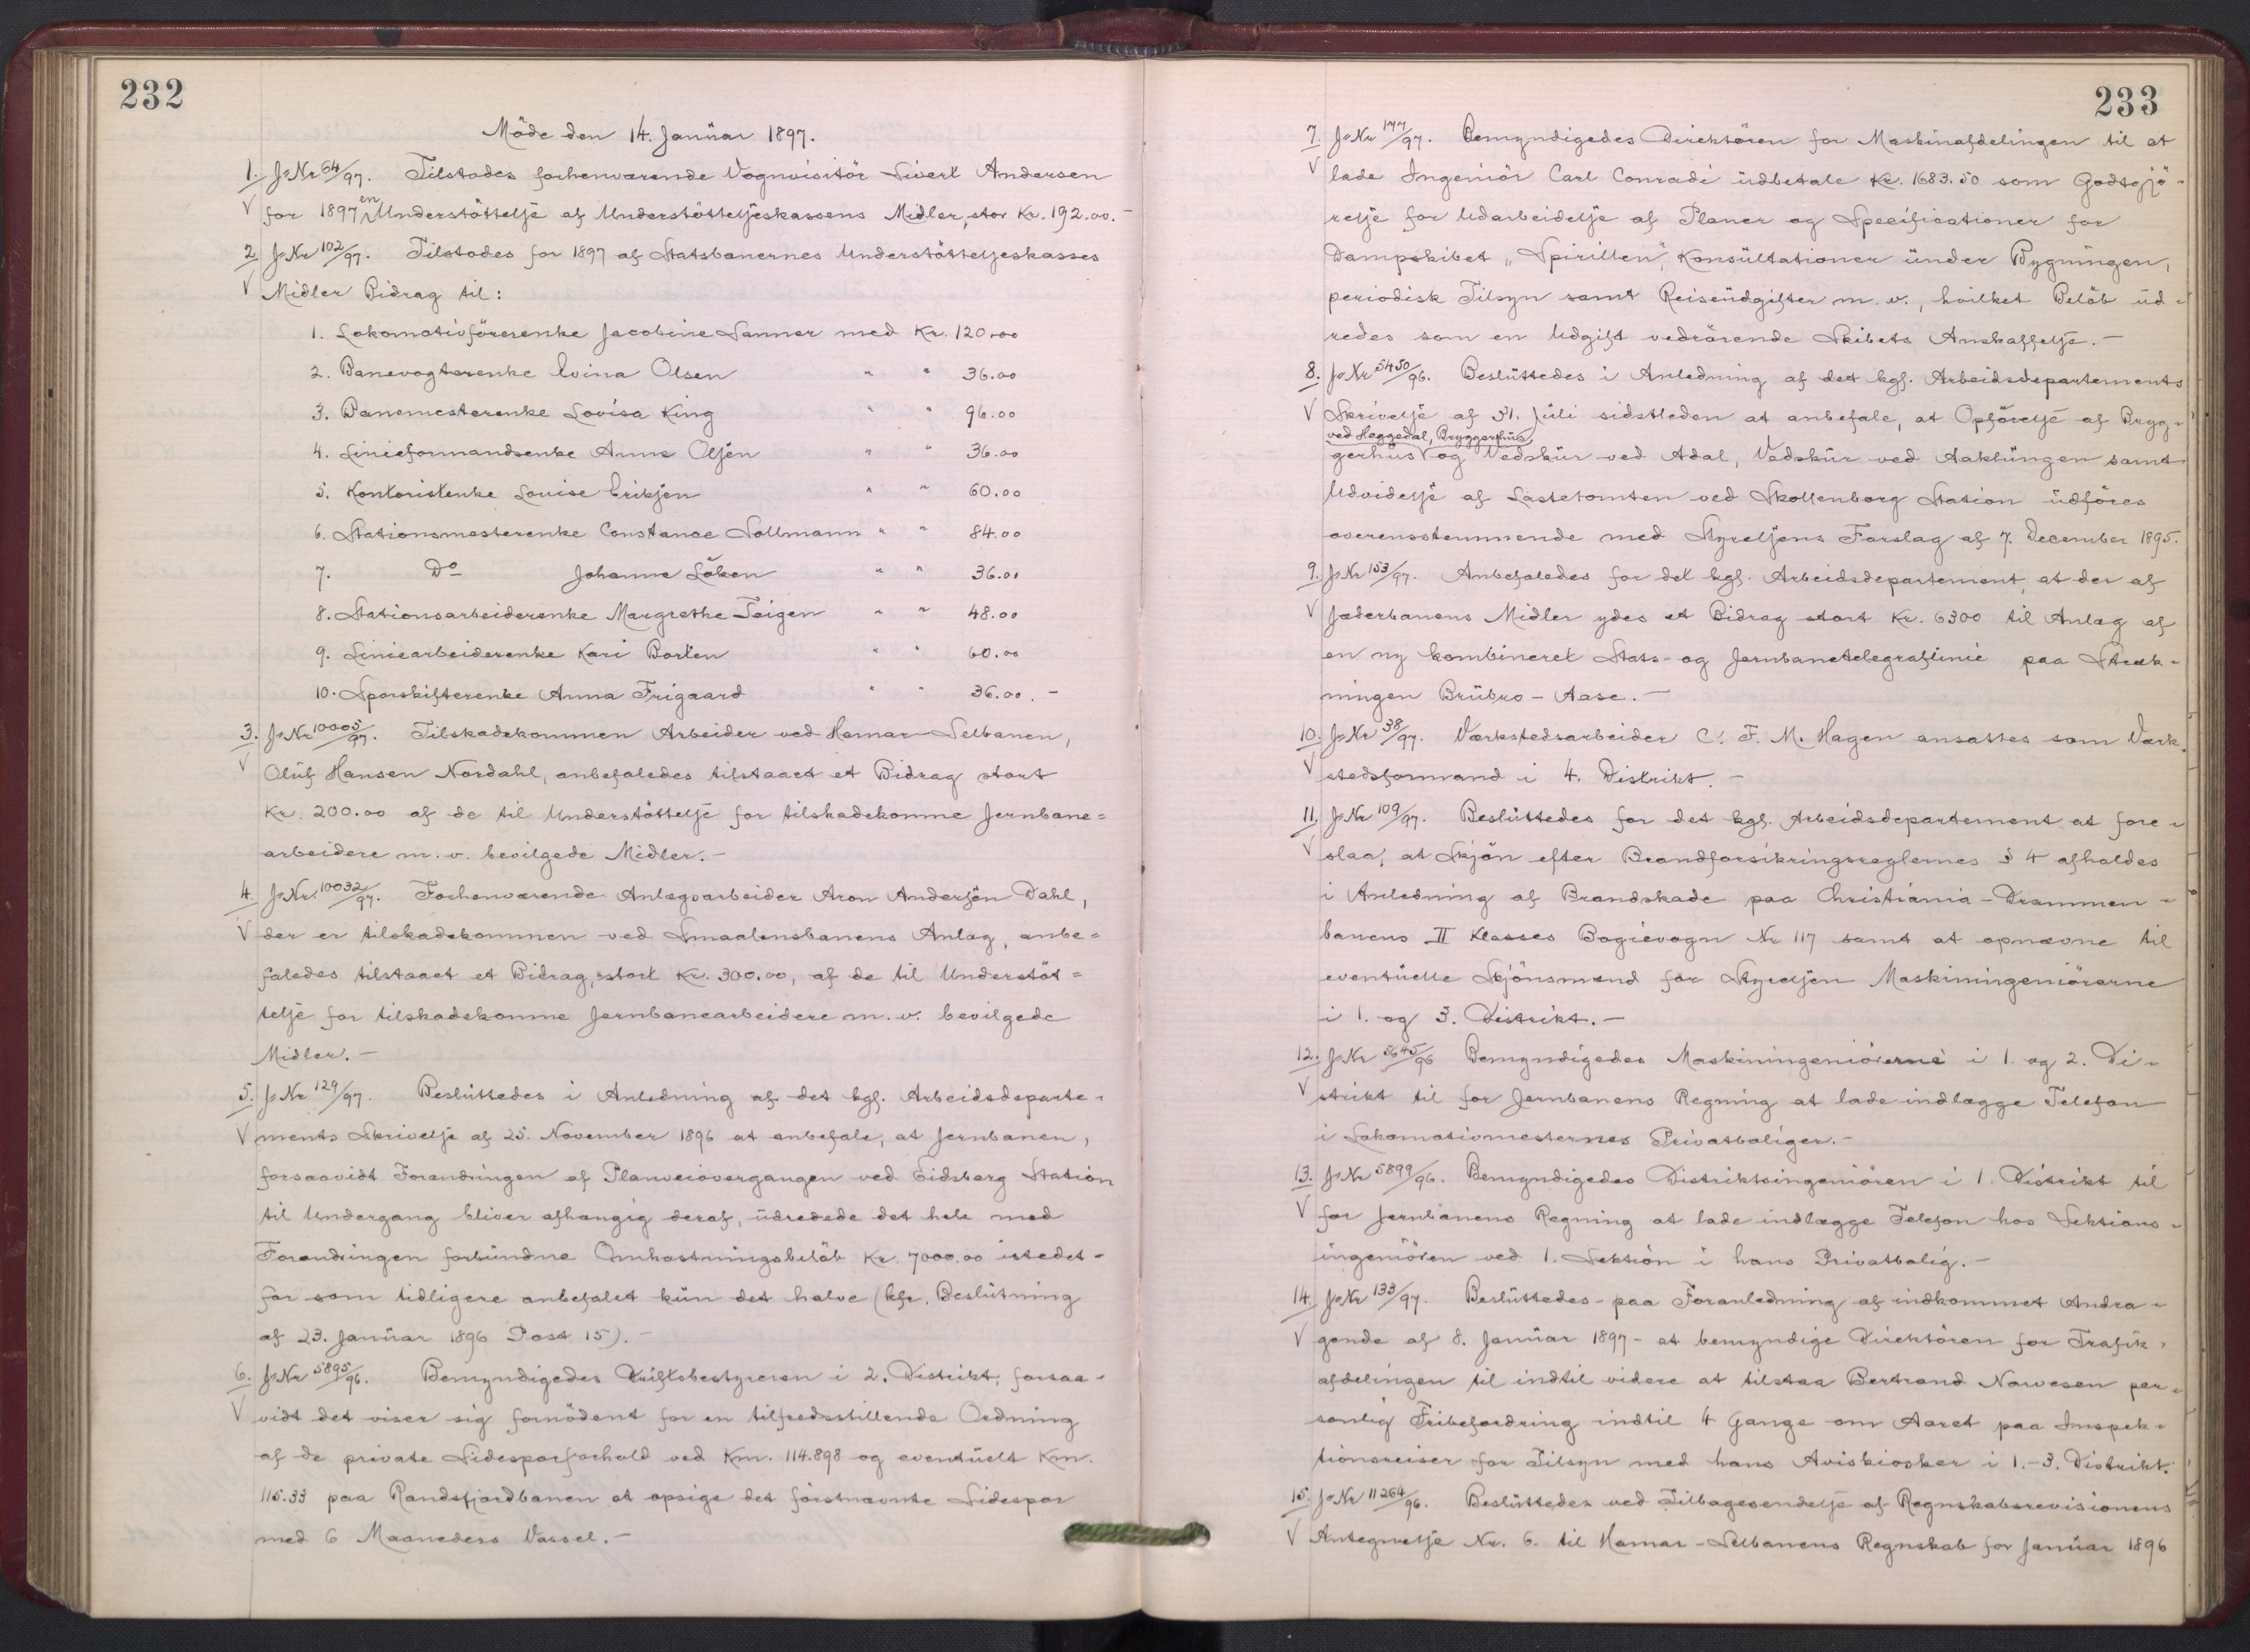 232
Möde den 14. Januar 1897.
1. J=Nr 64/97. Tilstodes forhenværende Vognvisitör Sivert Andersen
V for 1897 en Understöttelse af Understöttelseskassens Midler, stor Kr. 192.00.-
2. J=Nr 102/97. Tilstodes for 1897 af Statsbanernes Understöttelseskasses
V Midler Bidrag til:
1. Lokomotivförerenke Jacobine Sanner med Kr. 120.00
2. Banevogterenke Evina Olsen " " 36.00
3. Banemesterenke Lovisa King " " 96.00
4. Linieformandsenke Anne Olsen " " 36.00
5. Kontoristenke Louise Eriksen " " 60.00
6. Stationsmesterenke Constance Sollmann " " 84.00
7. Do Johanne Löken " " 36.00
8. Stationsarbeiderenke Margrethe Teigen " " 48.00
9. Liniearbeiderenke Kari Borten " " 60.00
10. Sporskifterenke Anna Frigaard " " 36.00.-
3. J=Nr 10005/97. Tilskadekommen Arbeider ved Hamar-Selbanen,
V Oluf Hansen Nordahl, anbefaledes tilstaaet et Bidrag stort
Kr. 200.00 af de til Understöttelse for tilskadekomne Jernbane=
arbeidere m. v. bevilgede Midler.-
4. J=Nr. 10032/97. Forhenværende Anlægsarbeider Aron Andersön Dahl,
V der er tilskadekommen ved Smaalensbanens Anlæg, anbe=
faledes tilstaaet et Bidrag, stort Kr. 300.00, af de til Understöt=
telse for tilskadekomne Jernbanearbeidere m. v. bevilgede
Midler.-
5. J=Nr 129/97. Besluttedes i Anledning af det kgl. Arbeidsdeparte-
V ments Skrivelse af 25. November 1896 at anbefale, at Jernbanen,
forsaavidt Forandringen af Planveiovergangen ved Eidsberg Station
til Undergang bliver afhængig deraf, udredede det hele med
Forandringen forbundne Omkostningsbelöb Kr. 7000.00 istedet-
for som tidligere anbefalet kun det halve (kfr. Beslutning
af 23. Januar 1896 Post 15).-
6. J=Nr 5895/96. Bemyndigedes Driftsbestyreren i 2. Distrikt, forsaa-
V vidt det viser sig fornödent for en tilfredsstillende Ordning
af de private Sidesporforhold ved Km. 114.898 og eventuelt Km.
115.33 paa Randsfjordbanen at opsige det förstnævnte Sidespor
med 6 Maaneders Varsel.-
233
7. J=Nr 177/97. Bemyndigedes Direktören for Maskinafdelingen til at
V lade Ingeniör Carl Conradi udbetale Kr. 1683.50 som Godtgjö-
relse for Udarbeidelse af Planer og Specificationer for
Dampskibet "Spirillen", Konsultationer under Bygningen,
periodisk Tilsyn samt Reiseudgifter m. v., hvilket Belöb ud-
redes som en Udgift vedrörende Skibets Anskaffelse.-
8. J=Nr 5450/96. Besluttedes i Anledning af det kgl. Arbeidsdepartements
V Skrivelse af 31. Juli sidstleden at anbefale, at Opförelse af Bryg-
ved Heggedal, Bryggerhus
gerhus og Vedskur ved Adal, Vedskur ved Aaklungen samt
Udvidelse af Lastetomten ved Skollenborg Station udföres
overensstemmende med Styrelsens Forslag af 7. December 1895.
9. J=Nr 153/97. Anbefaledes for det kgl. Arbeidsdepartement, at der af
V Jæderbanens Midler ydes et Bidrag stort Kr. 6300 til Anlæg af
en ny kombineret Stats- og Jernbanetelegraflinie paa Stræk-
ningen Brubro - Aase.-
10. J=Nr 38/97. Værkstedsarbeider C. F. M. Hagen ansattes som Værk-
V stedsformand i 4. Distrikt.-
11. J=Nr 109/97. Besluttedes for det kgl. Arbeidsdepartement at fore-
V slaa, at Skjön efter Brandforsikringsreglernes § 4 afholdes
i Anledning af Brandskade paa Christiania-Drammen-
banens II Klasses Bogievogn Nr 117 samt at opnævne til
eventuelle Skjönsmænd for Styrelsen Maskiningeniörerne
i 1. og 3. Distrikt.-
12. J=Nr 5645/96 Bemyndigedes Maskiningeniörerne i 1. og 2. Di-
V strikt til for Jernbanens Regning at lade indlægge Telefon
i Lokomotivmesternes Privatboliger.-
13. J=Nr 5899/96. Bemyndigedes Distriktsingeniören i 1. Distrikt til
V for Jernbanens Regning at lade indlægge Telefon hos Sektions-
ingeniören ved 1. Sektion i hans Privatbolig.-
14. J=Nr 133/97. Besluttedes - paa Foranledning af indkommet Andra-
V gende af 8. Januar 1897 - at bemyndige Direktören for Trafik-
afdelingen til indtil videre at tilstaa Bertrand Narvesen per-
sonlig Fribefordring indtil 4 Gange om Aaret paa Inspek-
tionsreiser for Tilsyn med hans Aviskiosker i 1.-3. Distrikt.
15. J=Nr 11264/96. Besluttedes ved Tilbagesendelse af Regnskabsrevisionens
V Antegnelse Nr. 6. til Hamar-Selbanens Regnskab for Januar 1896